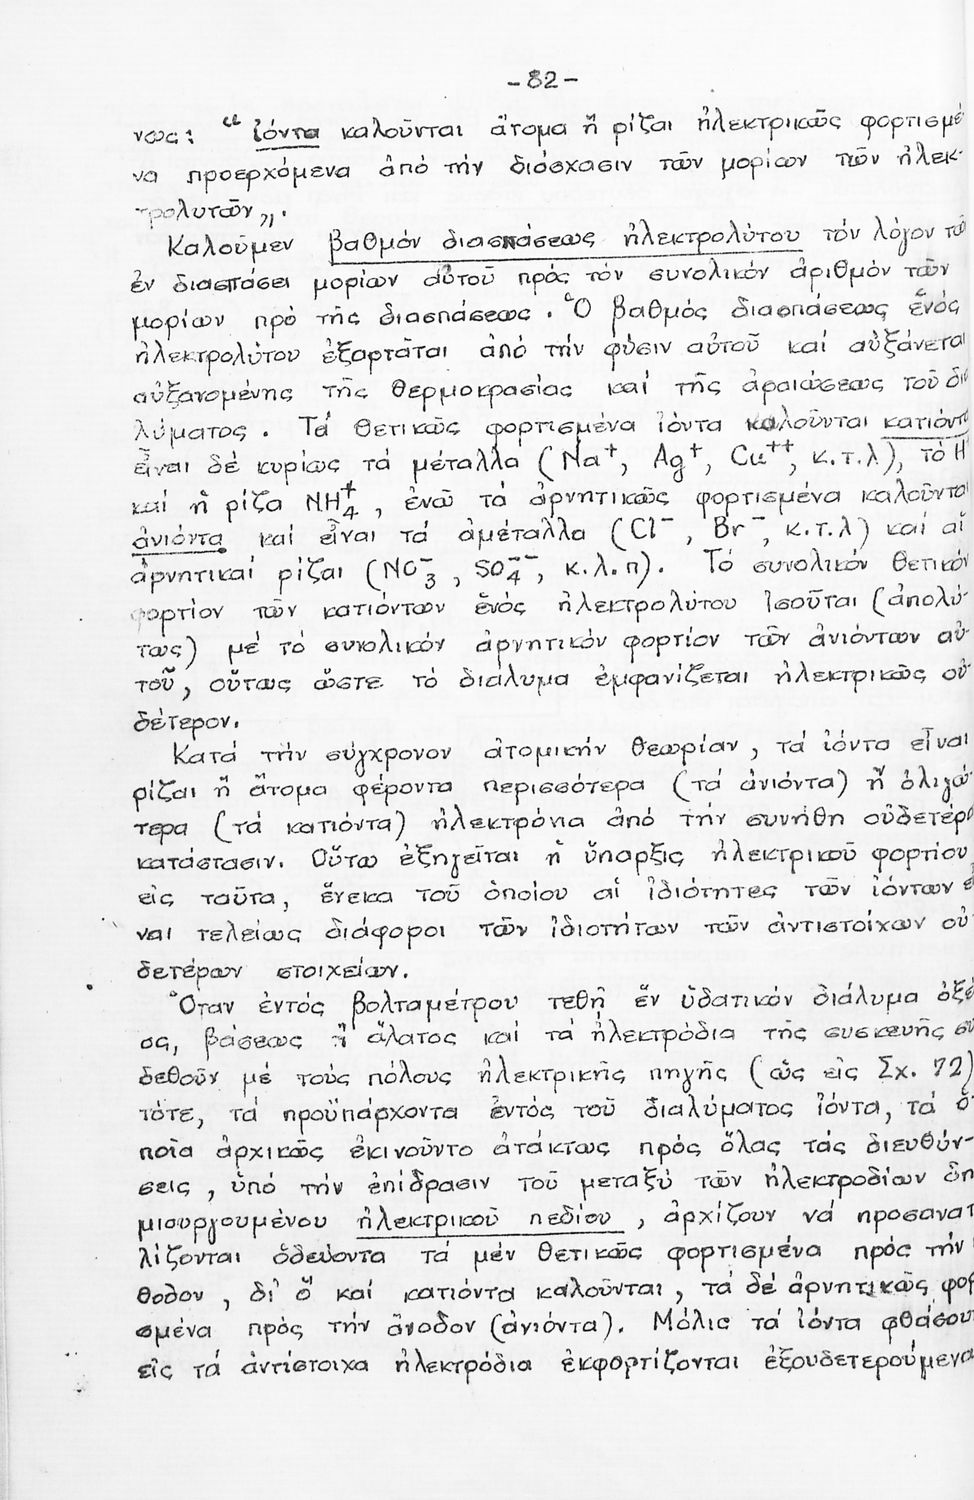 -82-
νως: “ ἰόντα καλοῦνται ἄτομα ἤ ρίζαι ἠλεκτρικῶς φορτισμέ
να προερχόμενα ἀπό τήν διάσχασιν τῶν μορίων τῶν ἠλεκ-
τρολυτῶν„.
Καλοῦμεν βαθμόν διασπάσεως ἠλεκτρολύτου τόν λόγον τῶ
ἐν διασπάσει μορίων αὐτοῦ πρός τόν συνολικόν ἀριθμόν τῶν
μορίων πρό τῆς διασπάσεως. Ὁ βαθμός διασπάσεως ἑνός
ἠλεκτρολύτου ἐξαρτᾶται ἀπό τήν φύσιν αὐτοῦ καί αὐξάνεται
αὐξανομένης τῆς θερμοκρασίας καί τῆς ἀραιώσεως τοῦ δια
λύματος. Τά θετικῶς φορτισμένα ἰόντα καλοῦνται κατιόντα
εἶναι δέ κυρίως τά μέταλλα (Na⁺, Ag⁺, Cu⁺⁺, κ.τ.λ), τό H
καί ἡ ρίζα NH₄⁺, ἐνῶ τά ἀρνητικῶς φορτισμένα καλοῦνται
ἀνιόντα καί εἶναι τά ἀμέταλλα (Cl⁻, Br⁻, κ.τ.λ) καί αἱ
ἀρνητικαί ρίζαι (NO₃⁻, SO₄⁻⁻, κ.λ.π). Τό συνολικόν θετικόν
φορτίον τῶν κατιόντων ἑνός ἠλεκτρολύτου ἰσοῦται (ἀπολύ-
τως) μέ τό συνολικόν ἀρνητικόν φορτίον τῶν ἀνιόντων αὐ-
τοῦ, οὕτως ὥστε τό διάλυμα ἐμφανίζεται ἠλεκτρικῶς οὐ-
δέτερον.
Κατά τήν σύγχρονον ἀτομικήν θεωρίαν, τά ἰόντα εἶναι
ρίζαι ἤ ἄτομα φέροντα περισσότερα (τά ἀνιόντα) ἤ ὀλιγώ-
τερα (τά κατιόντα) ἠλεκτρόνια ἀπό τήν συνήθη οὐδετέρα
κατάστασιν. Οὕτω ἐξηγεῖται ἡ ὕπαρξις ἠλεκτρικοῦ φορτίου
εἰς ταῦτα, ἕνεκα τοῦ ὁποίου αἱ ἰδιότητες τῶν ἰόντων εἶ
ναι τελείως διάφοροι τῶν ἰδιοτήτων τῶν ἀντιστοίχων οὐ-
δετέρων στοιχείων.
Ὅταν ἐντός βολταμέτρου τεθῆ ἕν ὑδατικόν διάλυμα ὀξέ
ος, βάσεως ἤ ἅλατος καί τά ἠλεκτρόδια τῆς συσκευῆς συ
δεθοῦν μέ τούς πόλους ἠλεκτρικῆς πηγῆς (ὡς εἰς Σχ. 72)
τότε, τά προϋπάρχοντα ἐντός τοῦ διαλύματος ἰόντα, τά ὁ-
ποῖα ἀρχικῶς ἐκινοῦντο ἀτάκτως πρός ὅλας τάς διευθύν-
σεις, ὑπό τήν ἐπίδρασιν τοῦ μεταξύ τῶν ἠλεκτροδίων δη
μιουργουμένου ἠλεκτρικοῦ πεδίου, ἀρχίζουν νά προσανατ
λίζονται ὁδεύοντα τά μέν θετικῶς φορτισμένα πρός τήν
θοδον, δι' ὅ καί κατιόντα καλοῦνται, τά δέ ἀρνητικῶς φορ
σμένα πρός τήν ἄνοδον (ἀνιόντα). Μόλις τά ἰόντα φθάσου
εἰς τά ἀντίστοιχα ἠλεκτρόδια ἐκφορτίζονται ἐξουδετερούμενα